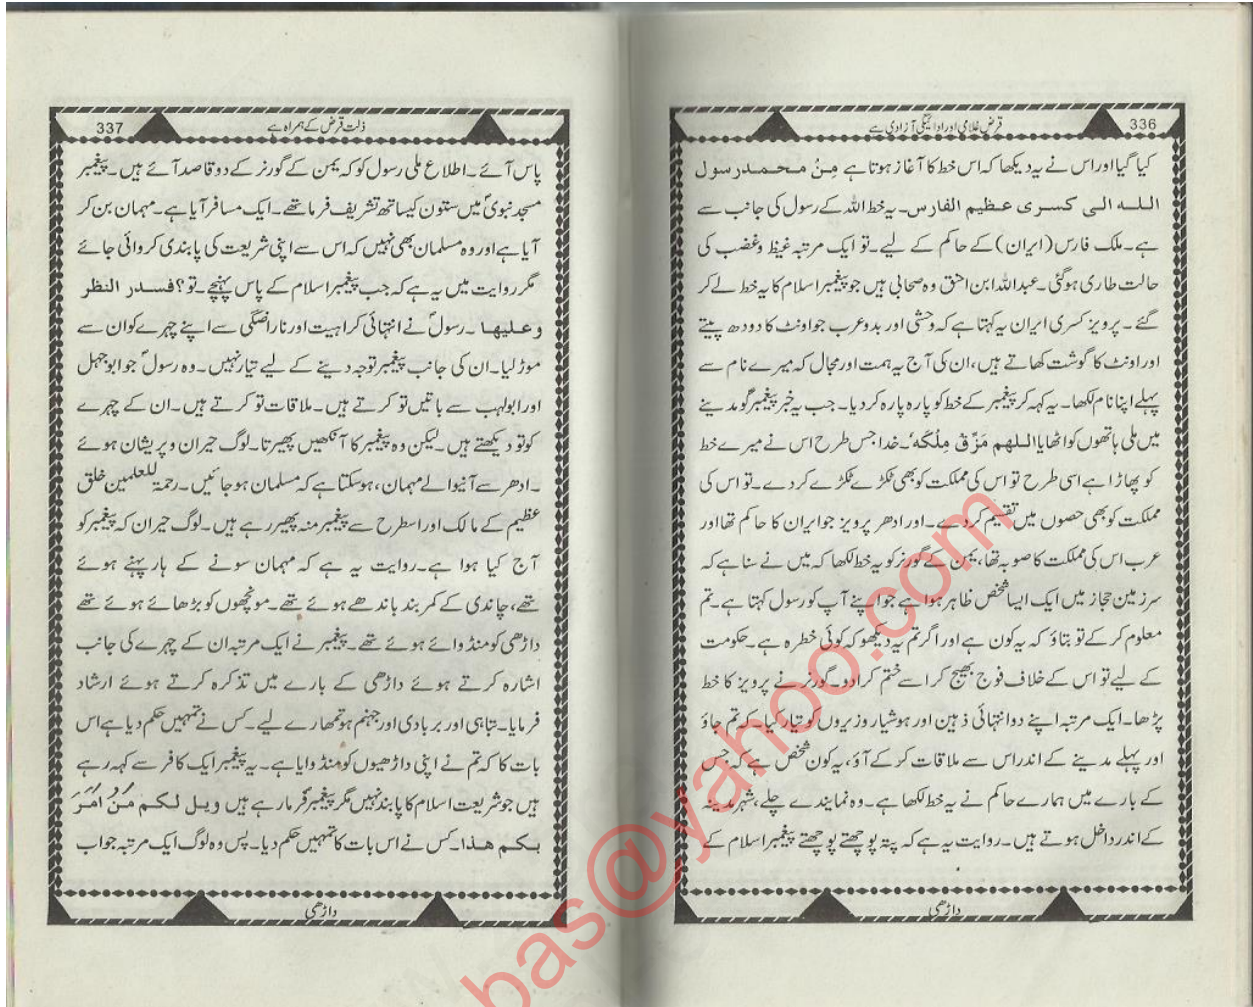 336
قرض غلامی اور ادائیگی آزادی ہے
کیا گیا اور اس نے یہ دیکھا کہ اس خط کا آغاز ہوتا ہے مِنْ محمد رسول
اللہ الی کسری عظیم الفارس۔ یہ خط اللہ کے رسول کی جانب سے
ہے۔ ملک فارس (ایران) کے حاکم کے لیے۔ تو ایک مرتبہ غیظ وغضب کی
حالت طاری ہوگئی۔ عبداللہ ابن اسحٰق وہ صحابی ہیں جو پیغمبر اسلام کا یہ خط لے کر
گئے۔ پرویز کسری ایران یہ کہتا ہے کہ وحشی اور بدو عرب جو اونٹ کا دودھ پیتے
اور اونٹ کا گوشت کھاتے ہیں، ان کی آج یہ ہمت اور مجال کہ میرے نام سے
پہلے اپنا نام لکھا۔ یہ کہہ کر پیغمبر کے خط کو پارہ پارہ کر دیا۔ جب یہ خبر پیغمبر کو مدینے
میں ملی ہاتھوں کو اٹھایا اللھم مَزِّق مِلْکَہٗ۔ خدا، جس طرح اس نے میرے خط
کو پھاڑا ہے اسی طرح تو اس کی مملکت کو بھی ٹکڑے ٹکڑے کر دے۔ تو اس کی
مملکت کو بھی حصوں میں تقسیم کر دے۔ اور ادھر پرویز جو ایران کا حاکم تھا اور
عرب اس کی مملکت کا صوبہ تھا، یمن کے گورنر کو یہ خط لکھا کہ میں نے سنا ہے کہ
سرزمین حجاز میں ایک ایسا شخص ظاہر ہوا ہے جو اپنے آپ کو رسول کہتا ہے۔ تم
معلوم کر کے تو بتاؤ کہ یہ کون ہے اور اگر تم یہ دیکھو کہ کوئی خطرہ ہے۔ حکومت
کے لیے تو اس کے خلاف فوج بھیج کر اسے ختم کرادو۔ گورنر نے پرویز کا خط
پڑھا۔ ایک مرتبہ اپنے دو انتہائی ذہین اور ہوشیار وزیروں کو تیار کیا۔ کہ تم جاؤ
اور پہلے مدینے کے اندر اس سے ملاقات کر کے آؤ، یہ کون شخص ہے کہ جس
کے بارے میں ہمارے حاکم نے یہ خط لکھا ہے۔ وہ نمایندے چلے، شہر مدینہ
کے اندر داخل ہوتے ہیں۔ روایت یہ ہے کہ پتہ پوچھتے پوچھتے پیغمبر اسلام کے
داڑھی
ذلت قرض کے ہمراہ ہے
337
پاس آئے۔ اطلاع ملی رسول کو کہ یمن کے گورنر کے دو قاصد آئے ہیں۔ پیغمبر
مسجد نبوی میں ستون کیساتھ تشریف فرما تھے۔ ایک مسافر آیا ہے۔ مہمان بن کر
آیا ہے اور وہ مسلمان بھی نہیں کہ اس سے اپنی شریعت کی پابندی کروائی جائے
مگر روایت میں یہ ہے کہ جب پیغمبر اسلام کے پاس پہنچے۔ تو؟ فسدر النظر
وعلیھا۔ رسولؐ نے انتہائی کراہیت اور ناراضگی سے اپنے چہرے کو ان سے
موڑ لیا۔ ان کی جانب پیغمبر توجہ دینے کے لیے تیار نہیں۔ وہ رسولؐ جو ابو جہل
اور ابولہب سے باتیں تو کرتے ہیں۔ ملاقات تو کرتے ہیں۔ ان کے چہرے
کو تو دیکھتے ہیں۔ لیکن وہ پیغمبر کا آنکھیں پھیرنا۔ لوگ حیران و پریشان ہوئے
۔ ادھر سے آنیوالے مہمان، ہوسکتا ہے کہ مسلمان ہو جائیں۔ رحمۃ للعلمین خلق
عظیم کے مالک اور اسطرح سے پیغمبر منہ پھیر رہے ہیں۔ لوگ حیران کہ پیغمبر کو
آج کیا ہوا ہے۔ روایت یہ ہے کہ مہمان سونے کے ہار پہنے ہوئے
تھے، چاندی کے کمر بند باندھے ہوئے تھے۔ مونچھوں کو بڑھائے ہوئے تھے
داڑھی کو منڈوائے ہوئے تھے۔ پیغمبر نے ایک مرتبہ ان کے چہرے کی جانب
اشارہ کرتے ہوئے داڑھی کے بارے میں تذکرہ کرتے ہوئے ارشاد
فرمایا۔ تباہی اور بربادی اور جہنم ہو تمھارے لیے۔ کس نے تمہیں حکم دیا ہے اس
بات کا کہ تم نے اپنی داڑھیوں کو منڈوایا ہے۔ یہ پیغمبر ایک کافر سے کہہ رہے
ہیں جو شریعت اسلام کا پابند نہیں مگر پیغمبر فرما رہے ہیں ویل لکم مَنْ اَمَرَ
بکم ھذا۔ کس نے اس بات کا تمہیں حکم دیا۔ پس وہ لوگ ایک مرتبہ جواب
داڑھی
bas@yahoo.com